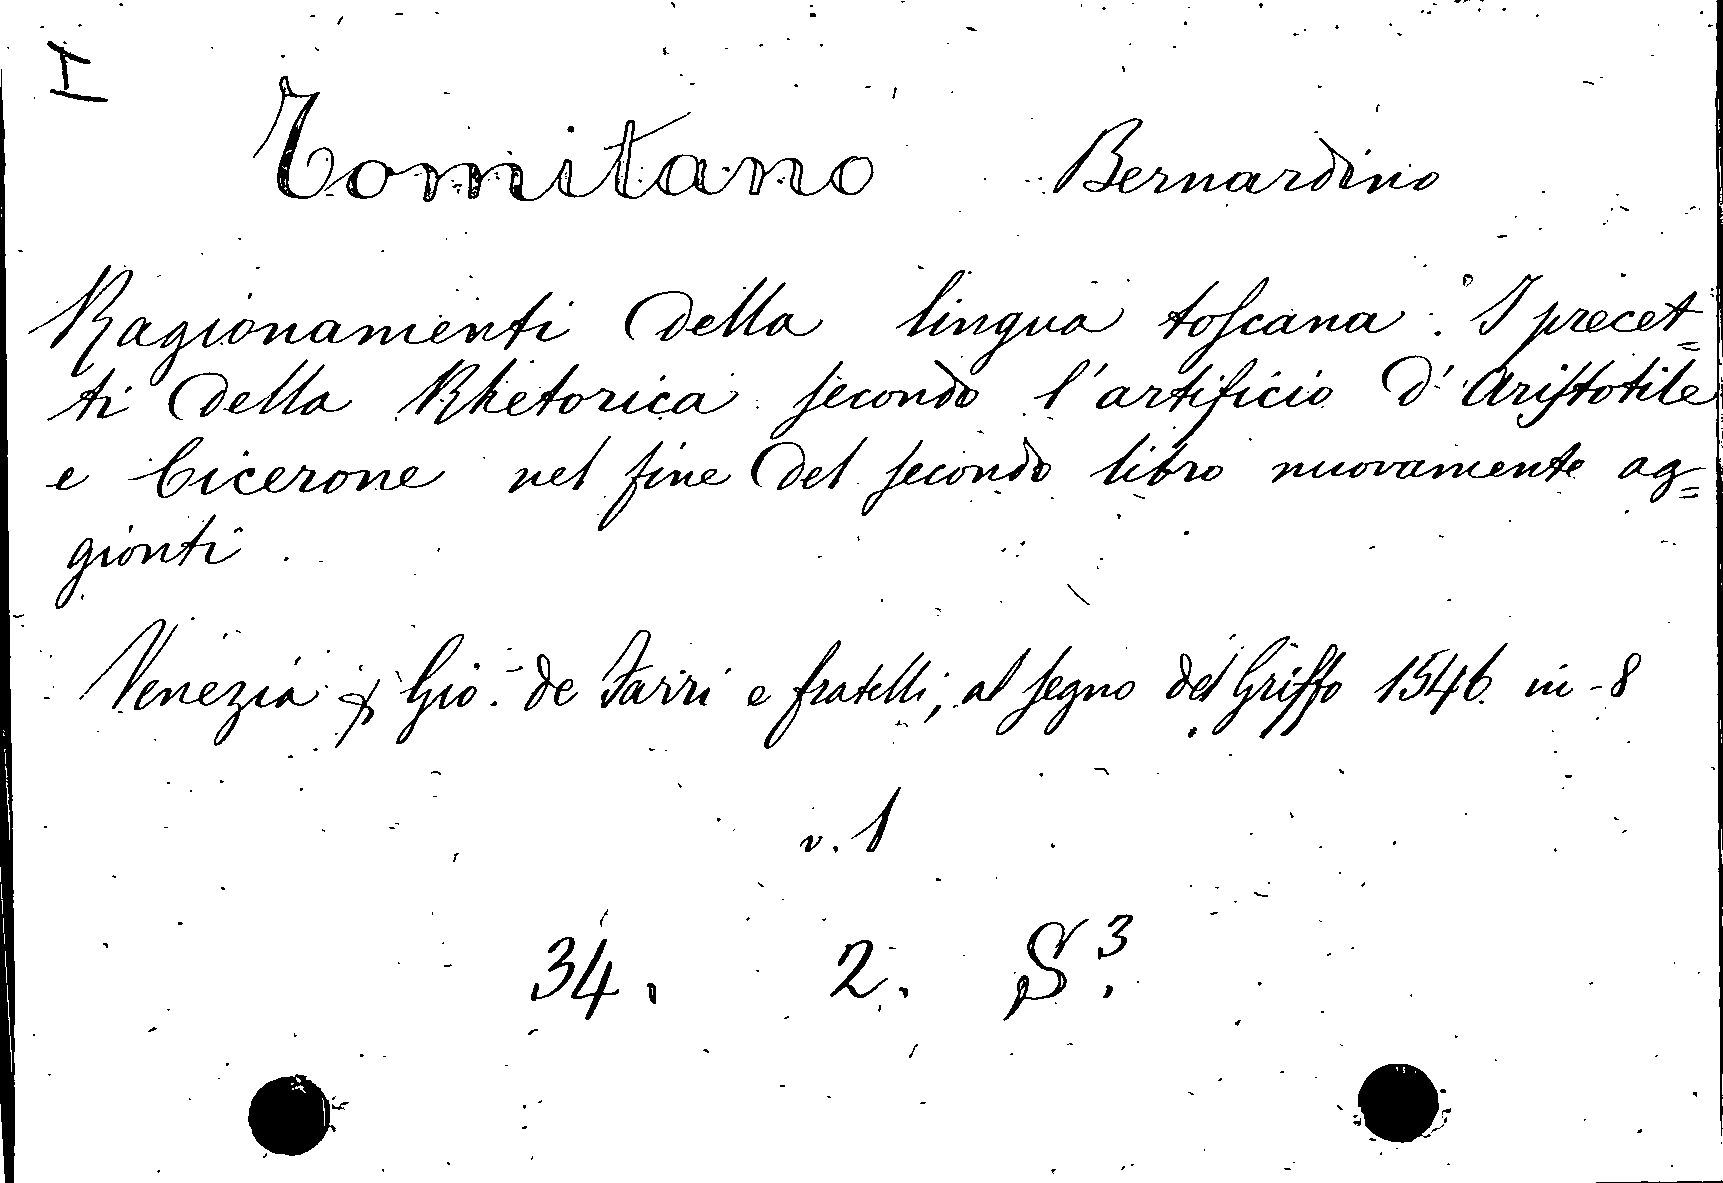 I
Tomitano Bernardino
Ragionamenti della lingua toscana. I precet=
ti della Rhetorica secondo l'artificio d'Aristotile
e Cicerone nel fine del secondo libro nuovamente ag=
gionti.
Venezia Gio. de Farri e fratelli, al segno del Griffo 1546 in-8
v. 1
34. 2. S.³